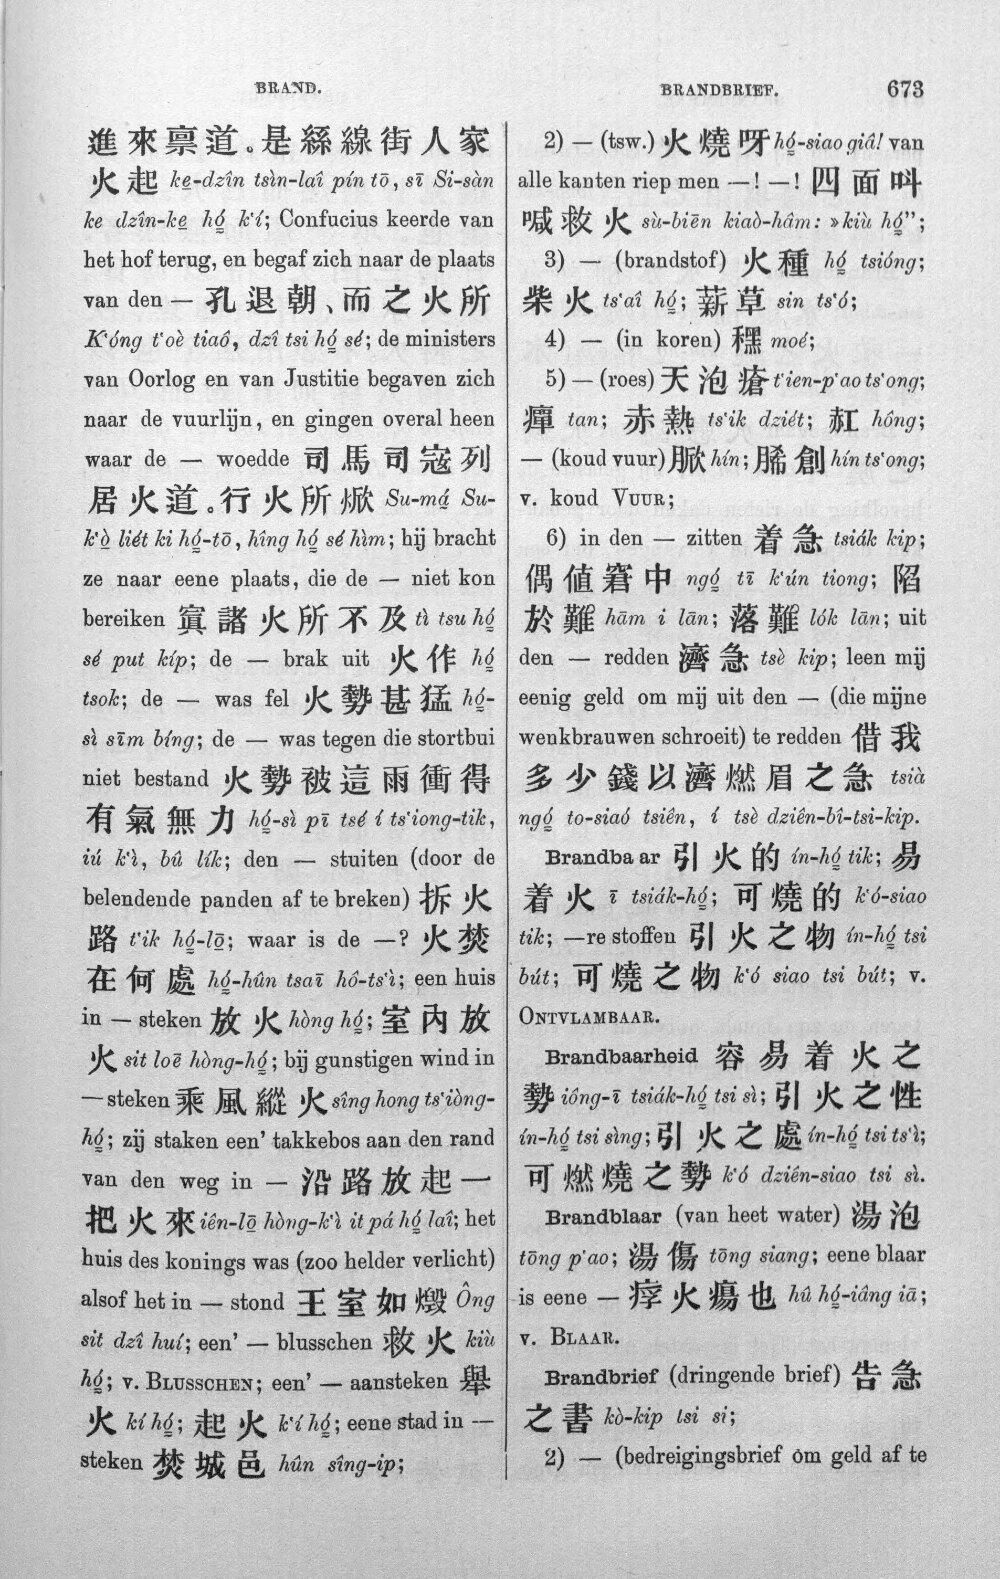 BRAND.
BRANDBRIEF. 673
進來禀道。是絲線街人家
火起 ke̱-dzîn tsìn-laî pín tō, sī Si-sàn
ke dzîn-ke̱ hó̤ kʻí; Confucius keerde van
het hof terug, en begaf zich naar de plaats
van den — 孔退朝、而之火所
Kʻóng tʻoè tiaô, dzî tsi hó̤ sé; de ministers
van Oorlog en van Justitie begaven zich
naar de vuurlijn, en gingen overal heen
waar de — woedde 司馬司寇列
居火道。行火所焮 Su-má̤ Su-
kʻò̤ liét ki hó̤-tō, hîng hó̤ sé hìm; hij bracht
ze naar eene plaats, die de — niet kon
bereiken 寘諸火所不及 tì tsu hó̤
sé put kíp; de — brak uit 火作 hó̤
tsok; de — was fel 火勢甚猛 hó̤-
sì sīm bíng; de — was tegen die stortbui
niet bestand 火勢被這雨衝得
有氣無力 hó̤-sì pī tsé í tsʻiong-tik,
iú kʻì, bû lík; den — stuiten (door de
belendende panden af te breken) 拆火
路 tʻik hó̤-lō̤; waar is de —? 火焚
在何處 hó̤-hûn tsaī hô-tsʻì; een huis
in — steken 放火 hòng hó̤; 室內放
火 sit loē hòng-hó̤; bij gunstigen wind in
— steken 乘風縱火 sîng hong tsʻiòng-
hó̤; zij staken een’ takkebos aan den rand
van den weg in — 沿路放起一
把火來 iên-lō̤ hòng-kʻì it pá hó̤ laî; het
huis des konings was (zoo helder verlicht)
alsof het in — stond 王室如燬 Ông
sit dzî huí; een’ — blusschen 救火 kiù
hó̤; v. BLUSSCHEN; een’ — aansteken 舉
火 kí hó̤; 起火 kʻí hó̤; eene stad in —
steken 焚城邑 hûn sîng-ip;
2) — (tsw.) 火燒呀 hó̤-siao giâ! van
alle kanten riep men —! —! 四面叫
喊救火 sù-biēn kiaò-hâm: »kiù hó̤”;
3) — (brandstof) 火種 hó̤ tsióng;
柴火 tsʻaî hó̤; 薪草 sin tsʻó;
4) — (in koren) 䆀 moé;
5) — (roes) 天泡瘡 tʻien-pʻao tsʻong;
癉 tan; 赤熱 tsʻik dziét; 紅 hông;
— (koud vuur) 脪 hín; 脪創 hín tsʻong;
v. koud VUUR;
6) in den — zitten 着急 tsiák kip;
偶値窘中 ngó̤ tī kʻún tiong; 陷
於難 hām i lān; 落難 lók lān; uit
den — redden 濟急 tsè kip; leen mij
eenig geld om mij uit den — (die mijne
wenkbrauwen schroeit) te redden 借我
多少錢以濟燃眉之急 tsià
ngó̤ to-siaó tsiên, í tsè dziên-bî-tsi-kip.
Brandbaar 引火的 ín-hó̤ tik; 易
着火 ī tsiák-hó̤; 可燒的 kʻó-siao
tik; —re stoffen 引火之物 ín-hó̤ tsi
bút; 可燒之物 kʻó siao tsi bút; v.
ONTVLAMBAAR.
Brandbaarheid 容易着火之
勢 iông-ī tsiák-hó̤ tsi sì; 引火之性
ín-hó̤ tsi sìng; 引火之處 ín-hó̤ tsi tsʻì;
可燃燒之勢 kʻó dziên-siao tsi sì.
Brandblaar (van heet water) 湯泡
tōng pʻao; 湯傷 tōng siang; eene blaar
is eene — 㾤火瘍也 hû hó̤-iâng iā;
v. BLAAR.
Brandbrief (dringende brief) 告急
之書 kò-kip tsi si;
2) — (bedreigingsbrief om geld af te